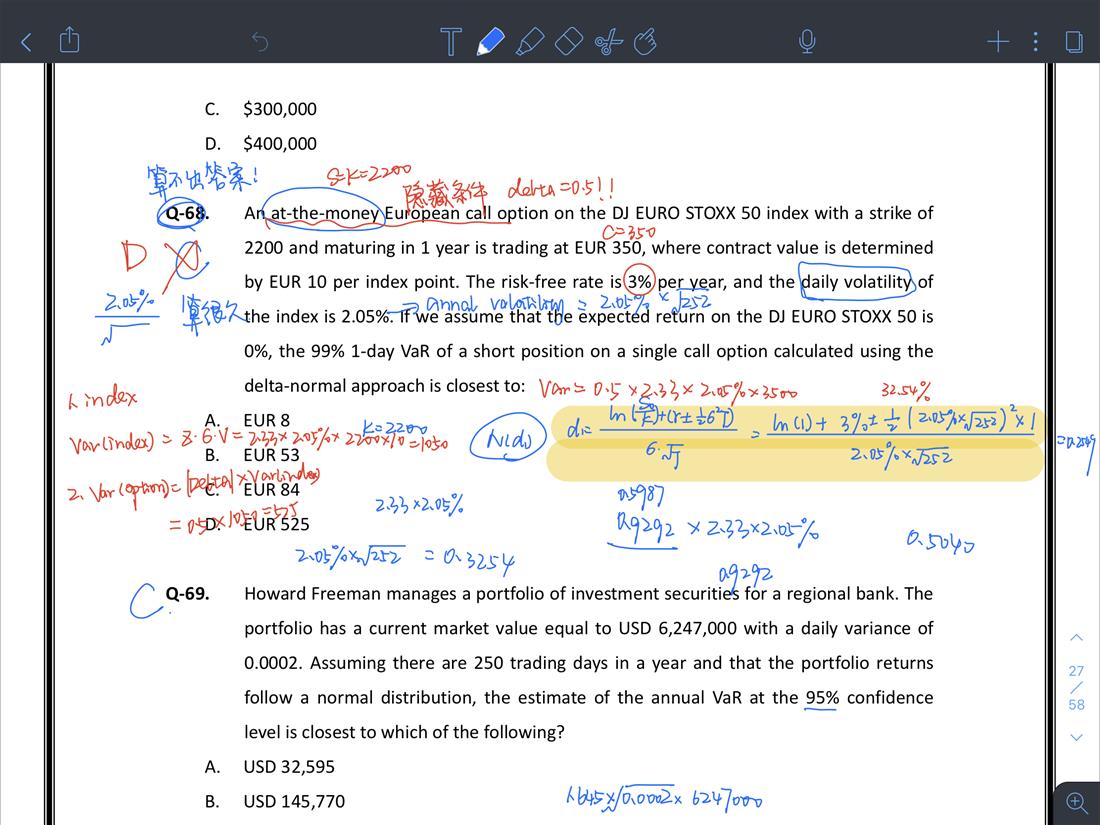 C. $300,000
D. $400,000
算不出答案!
S=K=2200
隐藏条件 delta=0.5!!
Q-68. An at-the-money European call option on the DJ EURO STOXX 50 index with a strike of
C=350
2200 and maturing in 1 year is trading at EUR 350, where contract value is determined
D C
by EUR 10 per index point. The risk-free rate is 3% per year, and the daily volatility of
2.05% / √ 算很久
→ annal volatility = 2.05% × √252
the index is 2.05%. If we assume that the expected return on the DJ EURO STOXX 50 is
0%, the 99% 1-day VaR of a short position on a single call option calculated using the
delta-normal approach is closest to:
Var = 0.5 × 2.33 × 2.05% × 3500
32.54%
1. index
A. EUR 8
K=2200
Var(index) = z·σ·V = 2.33×2.05%×2200×10=1050
N(d1)
B. EUR 53
2. Var(option)=|Delta|×Var(index)
C. EUR 84
=0.5×1050=525
D. EUR 525
2.33×2.05%
0.5987
0.9292 × 2.33×2.05%
0.5040
2.05%×√252 = 0.3254
0.9292
C
Q-69. Howard Freeman manages a portfolio of investment securities for a regional bank. The
portfolio has a current market value equal to USD 6,247,000 with a daily variance of
0.0002. Assuming there are 250 trading days in a year and that the portfolio returns
follow a normal distribution, the estimate of the annual VaR at the 95% confidence
level is closest to which of the following?
A. USD 32,595
B. USD 145,770
1.645×√0.0002×6247000
27
/
58